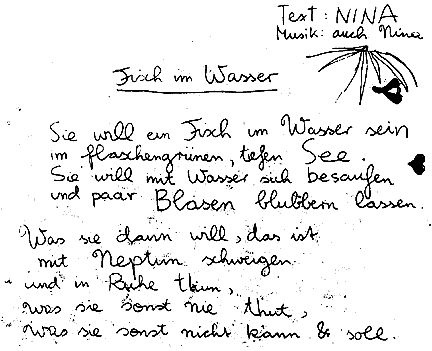 Text: NINA
Musik: auch Nina
Fisch im Wasser
Sie will ein Fisch im Wasser sein
im flaschengrünen, tiefen See.
Sie will mit Wasser sich besaufen
und paar Blasen blubbern lassen.
Was sie dann will, das ist
mit Neptun schweigen
und in Ruhe thun,
was sie sonst nie thut,
was sie sonst nicht kann & soll.